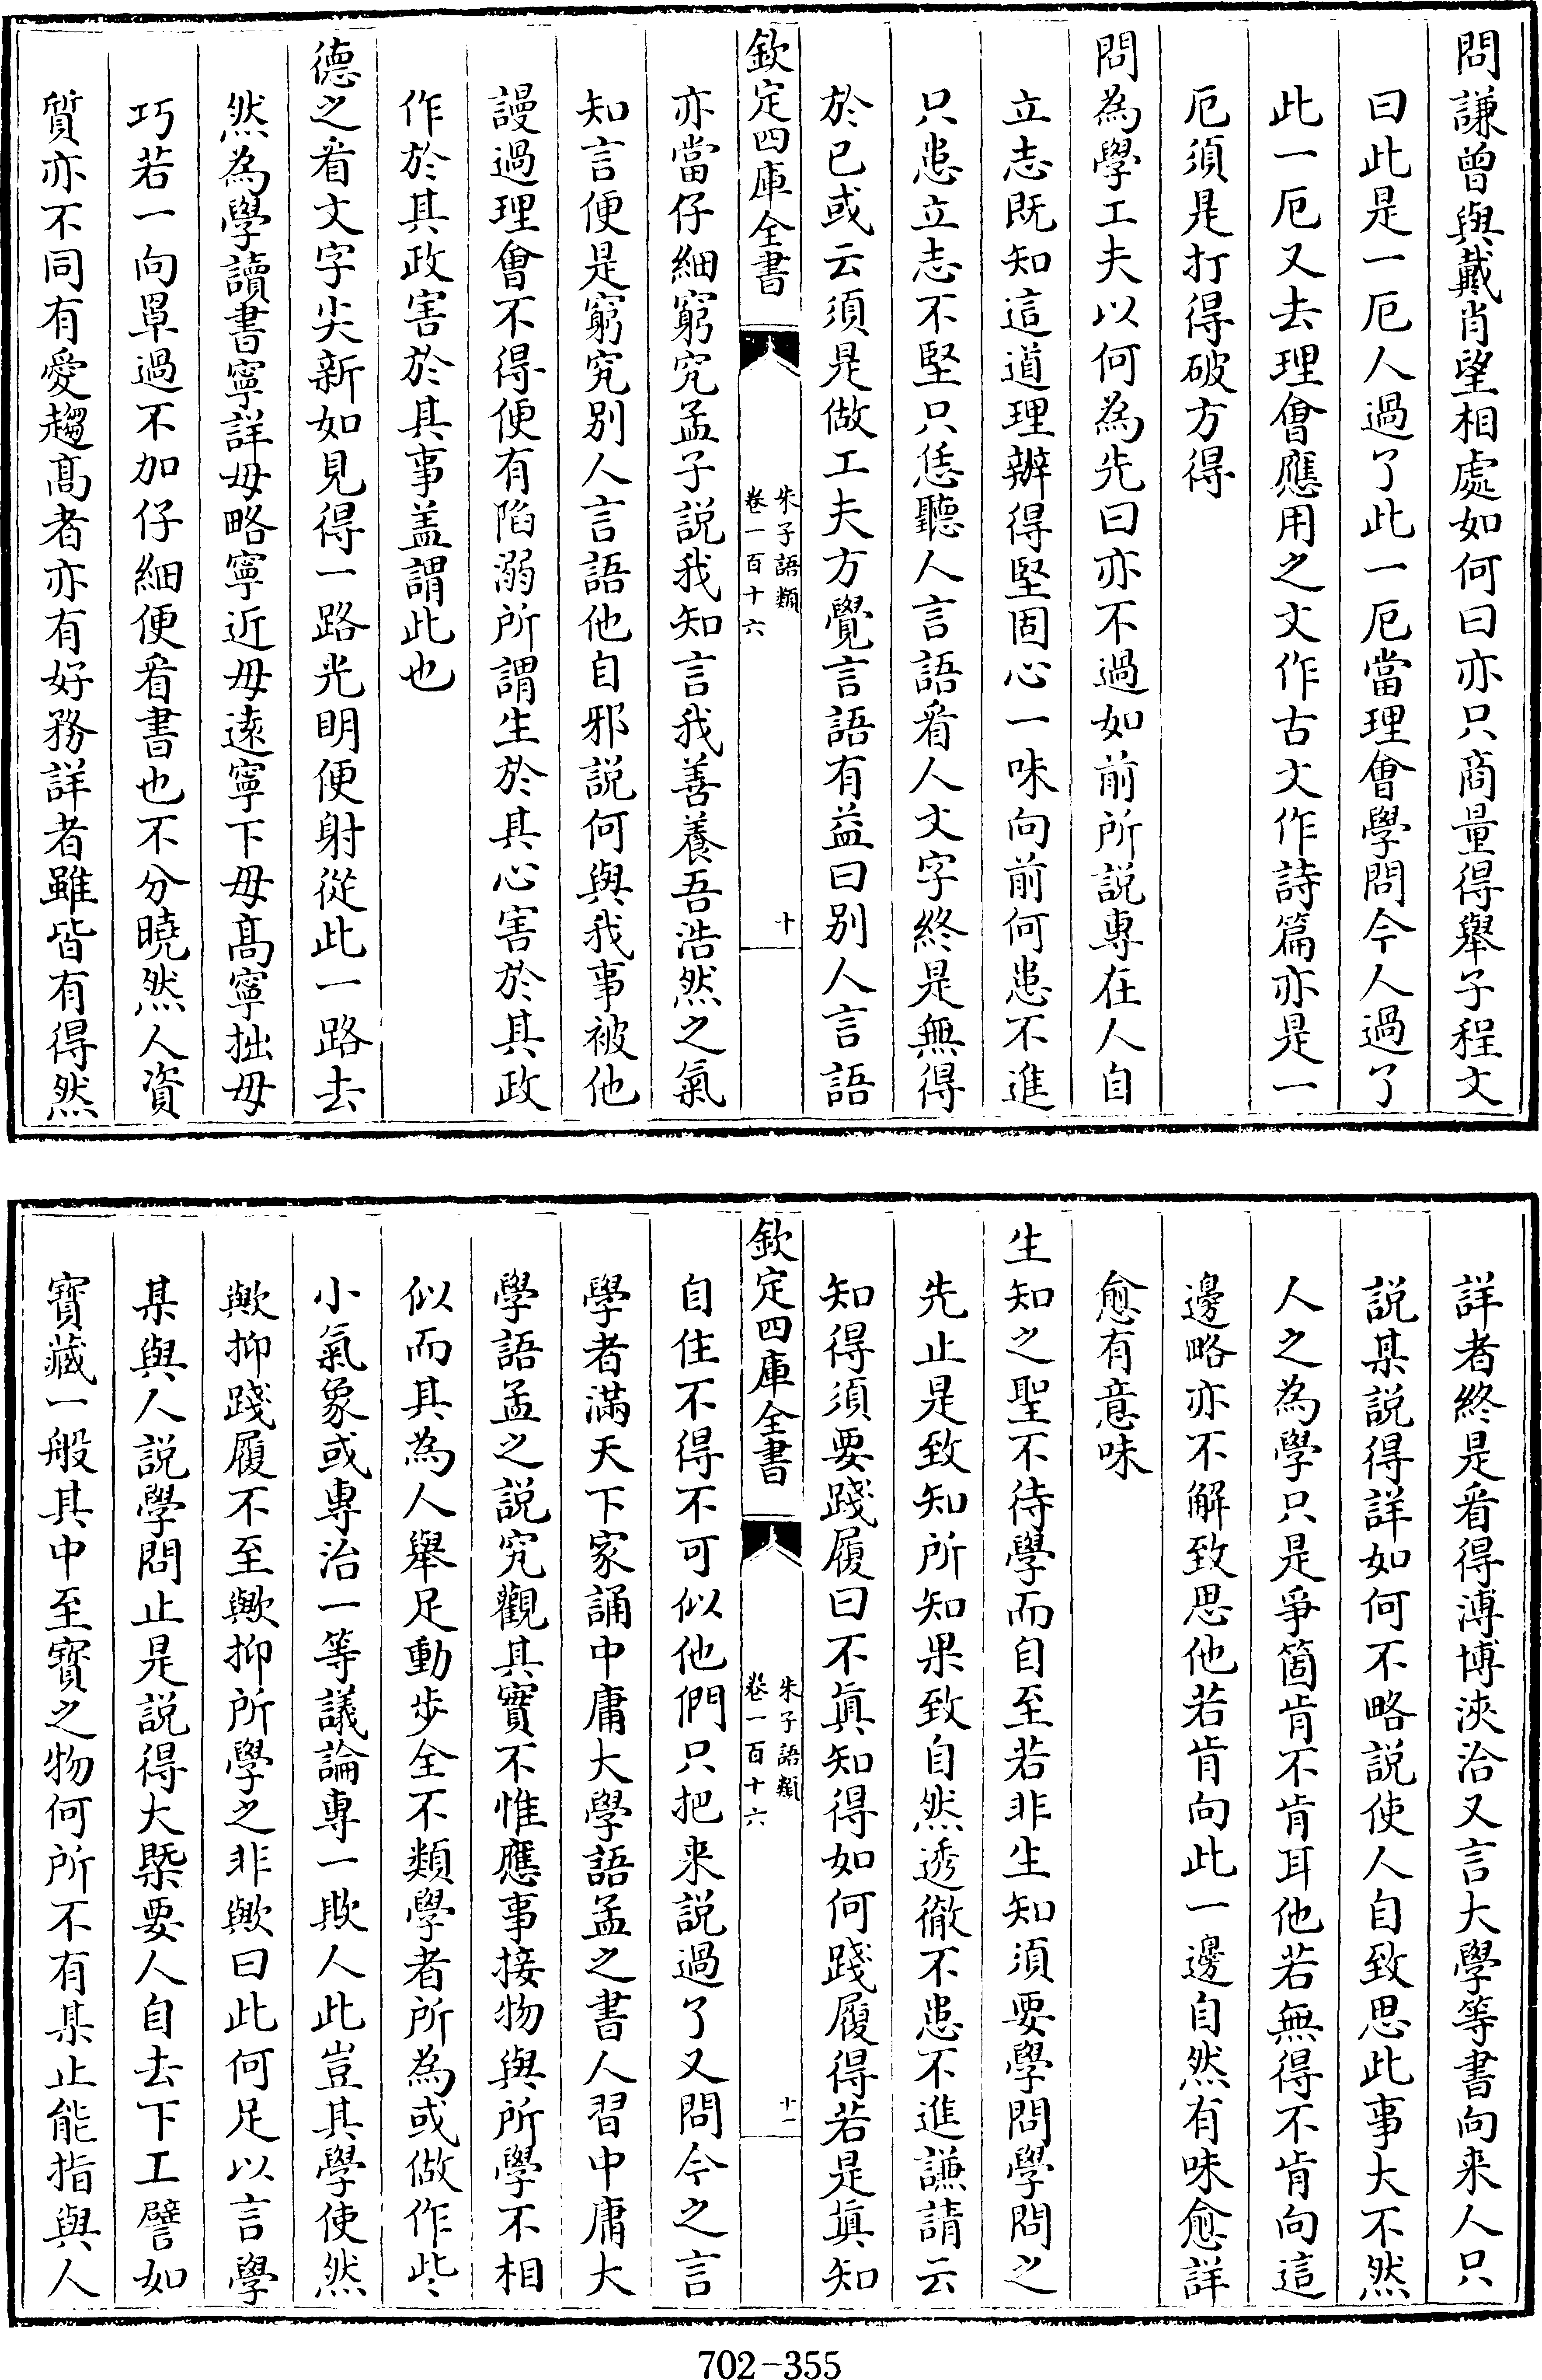 問謙曾與戴肖望相處如何曰亦只商量得舉子程文
曰此是一厄人過了此一厄當理會學問今人過了
此一厄又去理會應用之文作古文作詩篇亦是一
厄須是打得破方得
問為學工夫以何為先曰亦不過如前所説專在人自
立志既知這道理辦得堅固心一味向前何患不進
只患立志不堅只恁聽人言語看人文字終是無得
於已或云須是做工夫方覺言語有益曰别人言語
欽定四庫全書
朱子語類
卷一百十六
十
亦當仔細窮究孟子説我知言我善養吾浩然之氣
知言便是窮究别人言語他自邪説何與我事被他
謾過理會不得便有陷溺所謂生於其心害於其政
作於其政害於其事盖謂此也
德之看文字尖新如見得一路光明便射從此一路去
然為學讀書寧詳毋略寧近毋逺寧下毋髙寧拙毋
巧若一向罩過不加仔細便看書也不分曉然人資
質亦不同有愛趨髙者亦有好務詳者雖皆有得然
詳者終是看得溥博浹洽又言大學等書向來人只
説某説得詳如何不略説使人自致思此事大不然
人之為學只是爭箇肯不肯耳他若無得不肯向這
邊略亦不解致思他若肯向此一邊自然有味愈詳
愈有意味
生知之聖不待學而自至若非生知須要學問學問之
先止是致知所知果致自然透徹不患不進謙請云
知得須要踐履曰不真知得如何踐履得若是真知
欽定四庫全書
朱子語類
卷一百十六
十一
自住不得不可似他們只把來説過了又問今之言
學者滿天下家誦中庸大學語孟之書人習中庸大
學語孟之説究觀其實不惟應事接物與所學不相
似而其為人舉足動步全不類學者所為或做作些
小氣象或専治一等議論専一欺人此豈其學使然
歟抑踐履不至歟抑所學之非歟曰此何足以言學
某與人説學問止是説得大槩要人自去下工譬如
寶藏一般其中至寶之物何所不有某止能指與人
702-355